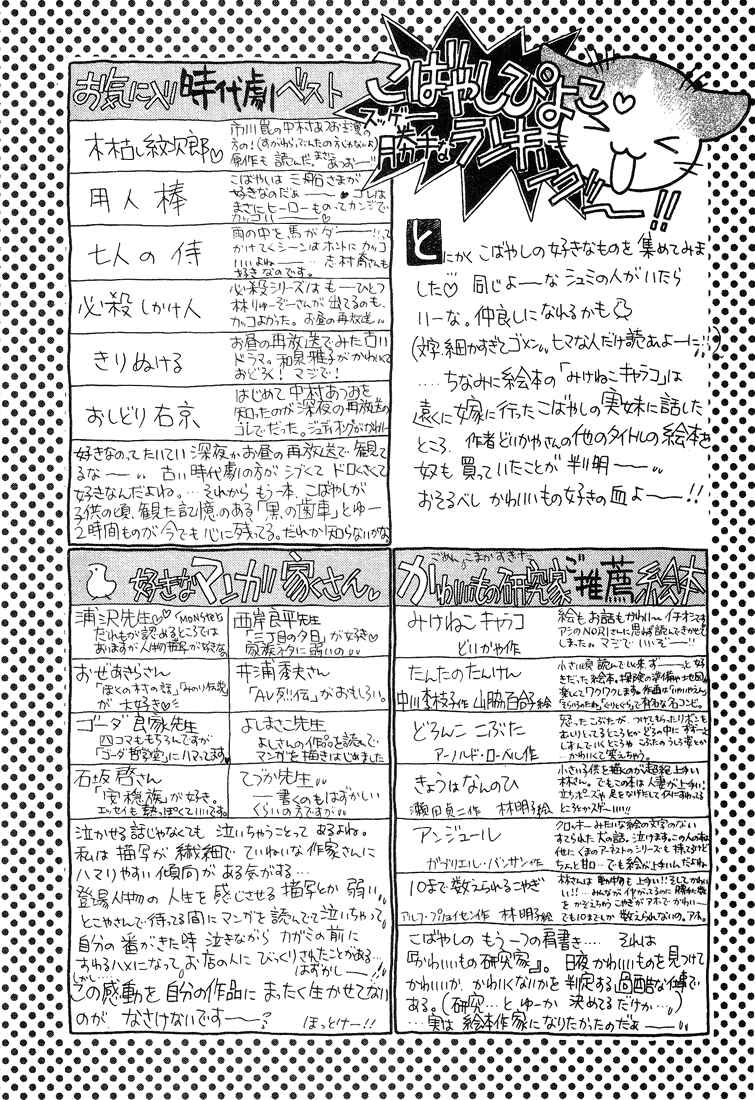 こばやしぴよこ♡
スッゲー
勝手なランキ
イグ〜!!
とにかく こばやしの好きなものを 集めてみま
した♡ 同じよーな シュミの人がいたら
いーな。仲良しになれるかも
(文字、細かすぎてゴメン。ヒマな人だけ読あよーに!!)
……ちなみに絵本の「みけねこキャラコ」は
遠くに嫁に行ったこばやしの実妹に話した
ところ、作者どいかやさんの他のタイトルの絵本を
奴も買っていたことが判明――
おそるべし かわいいもの好きの血よ――!!
お気に入り時代劇ベスト
木枯し紋次郎♡
市川崑の中村あつお主演の
方の!(すがわらぶんたの方じゃないよ)
原作も読んだ。
用人棒
こばやしは 三船さまが
好きなのだぁ――♡ コレは
まさにヒーローものってカンジで
カッコいい――♡
七人の侍
雨の中を馬がダ――!!って
かけてくシーンはホントにカッコ
いいよね――… 志村喬さんも
好きなのです。
必殺しかけ人
必殺シリーズは もーひとつ
林りゅーぞーさんが出てるのも、
カッコよかった。お昼の再放送
きりぬける
お昼の再放送でみた古い
ドラマ。和泉雅子がかわいくて
おどろく!マジで!
おしどり右京
はじめて中村あつおを
知ったのが深夜の再放送の
コレでだった。ジュディオングがかわいー
好きなのってたいてい深夜かお昼の再放送で観て
るな――。古い時代劇の方がシブくてドロくさくて
好きなんだよね。…それからもう一本、こばやしが
子供の頃、観た記憶のある「黒の歯車」とゆー
2時間ものが今でも心に残ってる。だれか知らないかな
好きなマンガ家さん
浦沢先生♡
「MONSTER」
だれもが認めるところでは
ありますが人物描写が好きな。
西岸良平先生
「三丁目の夕日」が好き♡
家族ネタに弱いの
おぜあきらさん
「ぼくの村の話」「みのり伝説」
が大好き♡
井浦秀夫さん
「AV烈伝」がおもしろい。
ゴーダ良家先生
四コマももちろんですが
「ゴーダ哲学堂」にハマってます♡
よしまさこ先生
よしさんの作品を読んで
マンガを描きはじめました
石坂啓さん
「安穏族」が好き。
エッセイも熱っぽくていいです。
てづか先生
…書くのもはずかしい
くらいの方ですが
泣かせる話じゃなくても 泣いちゃうことってあるよね。
私は 描写が 繊細で ていねいな作家さんに
ハマりやすい傾向がある気がする…
登場人物の人生を感じさせる描写とか 弱い。
とこやさんで待ってる間にマンガを読んでて泣いちゃって
自分の番がきた時 泣きながら カガミの前に
すわるハメになって お店の人に びっくりされたことがある…
しかし…
はずかし――!!
この感動を 自分の作品に まったく生かせてない
のが なさけないです――? ほっとけー!!
ごめん、こまかすぎた
かわいいもの研究家ご推薦絵本
みけねこ キャラコ
どいかや作
絵もお話もかわい〜 イチオシです
アシのNORIさんに思わず読んできかせて
しまった。マジでいいぞー!!
たんたのたんけん
中川李枝子作 山脇百合子絵
小さい頃読んでいて以来、ずーっと好
きだった絵本。探険の準備や地図が
楽しくてワクワクします。作画は「いやいやえん」
「ぐりとぐら」で有名な名コンビ。
どろんこ こぶた
アーノルド・ローベル作
きょうはなんのひ
瀬田貞二作 林明子絵
小さい子供を描くのが超絶上手い
林さん。でもこの本は人妻が上手い!
アンジュール
ガブリエル・バンサン作
クロッキーみたいな絵の文字のない
すてられた犬の話。泣けます。この人の本は
他にくまのアーネストのシリーズも持ってるけど
ちょっと甘口…でも絵が上手いんだよね
10まで数えられるこやぎ
アルフ・プリョイセン作 林明子絵
林さんは動物も上手い!!そしてかわい
い!!…みんなが
でも10までしか数えられないの。アホ。
こばやしの もう一つの肩書き… それは
『かわいいもの研究家』。日夜かわいいものを見つけて
かわいいか、かわいくないかを判定する過酷な仕事で
ある。(研究…とゆーか 決めてるだけか…)
…実は絵本作家になりたかったのだぁ――